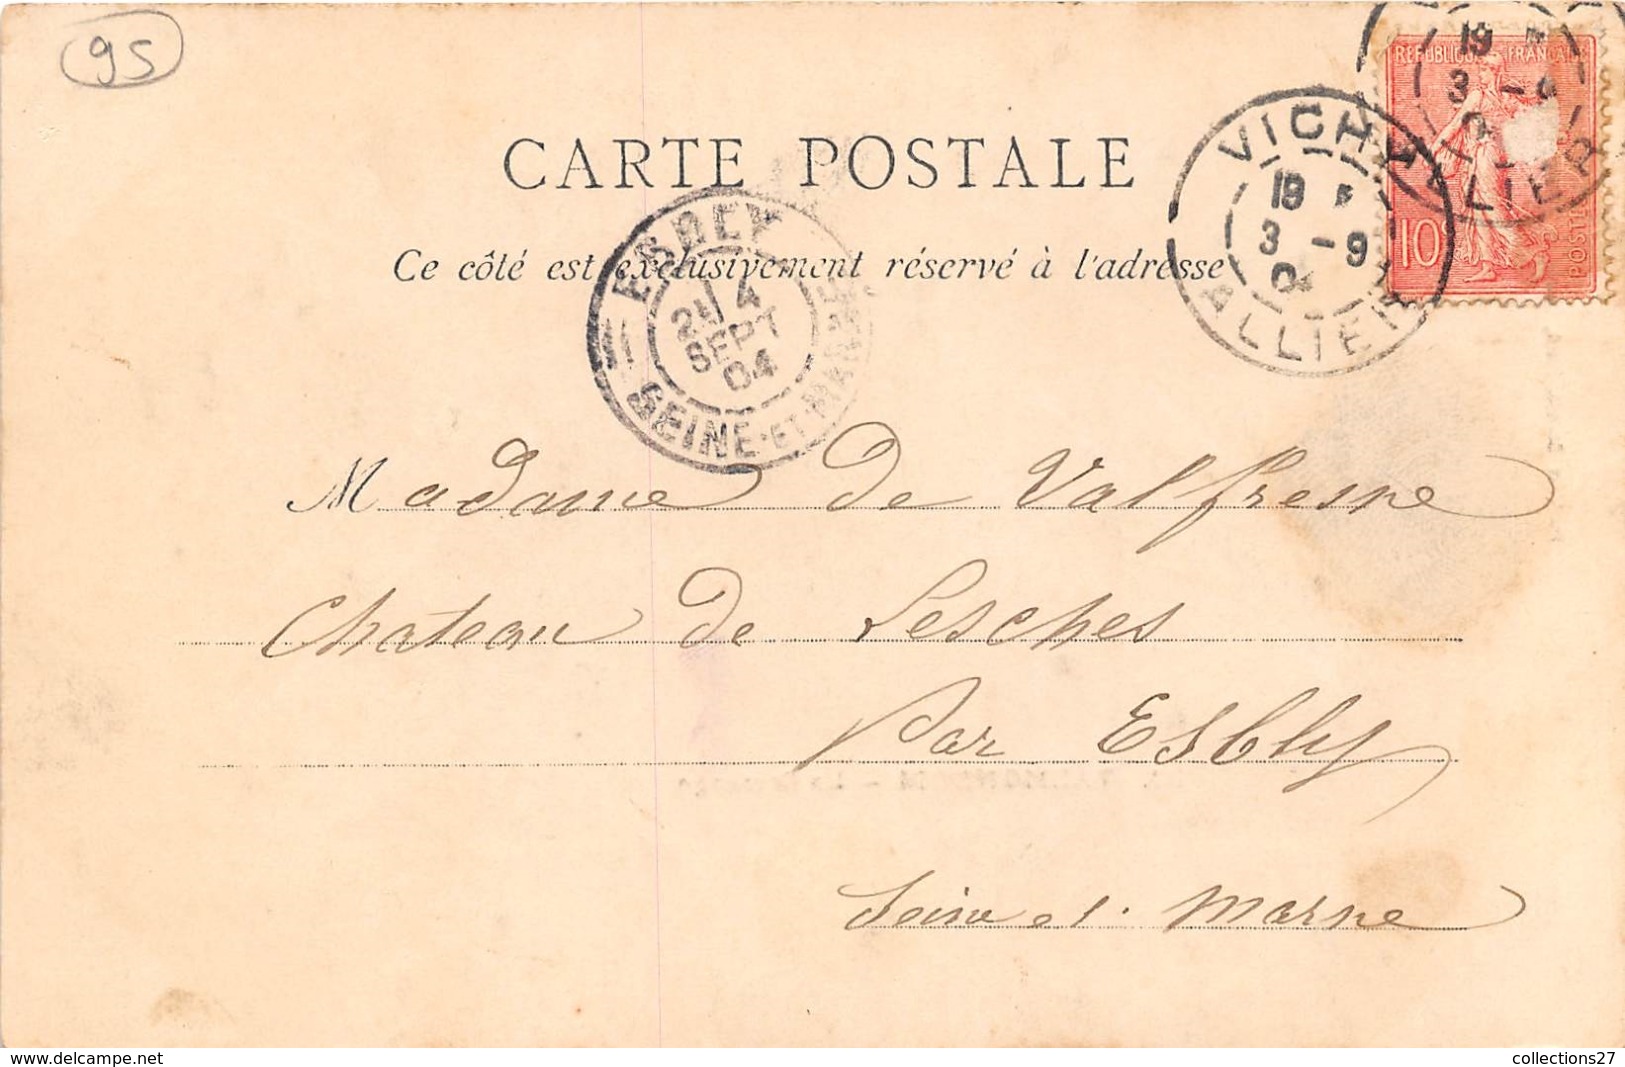 95
CARTE POSTALE
Ce côté est exclusivement réservé à l'adresse
REPUBLIQUE FRANÇAISE
10
VICHY
19
3 -9
04
ALLIER
19
3
ALLIER
ESBLY
2E 4
SEPT
04
SEINE-ET-MARNE
Madame De Valfresne
Chateau De Lesches
Par Esbly
Seine et. Marne
collections27